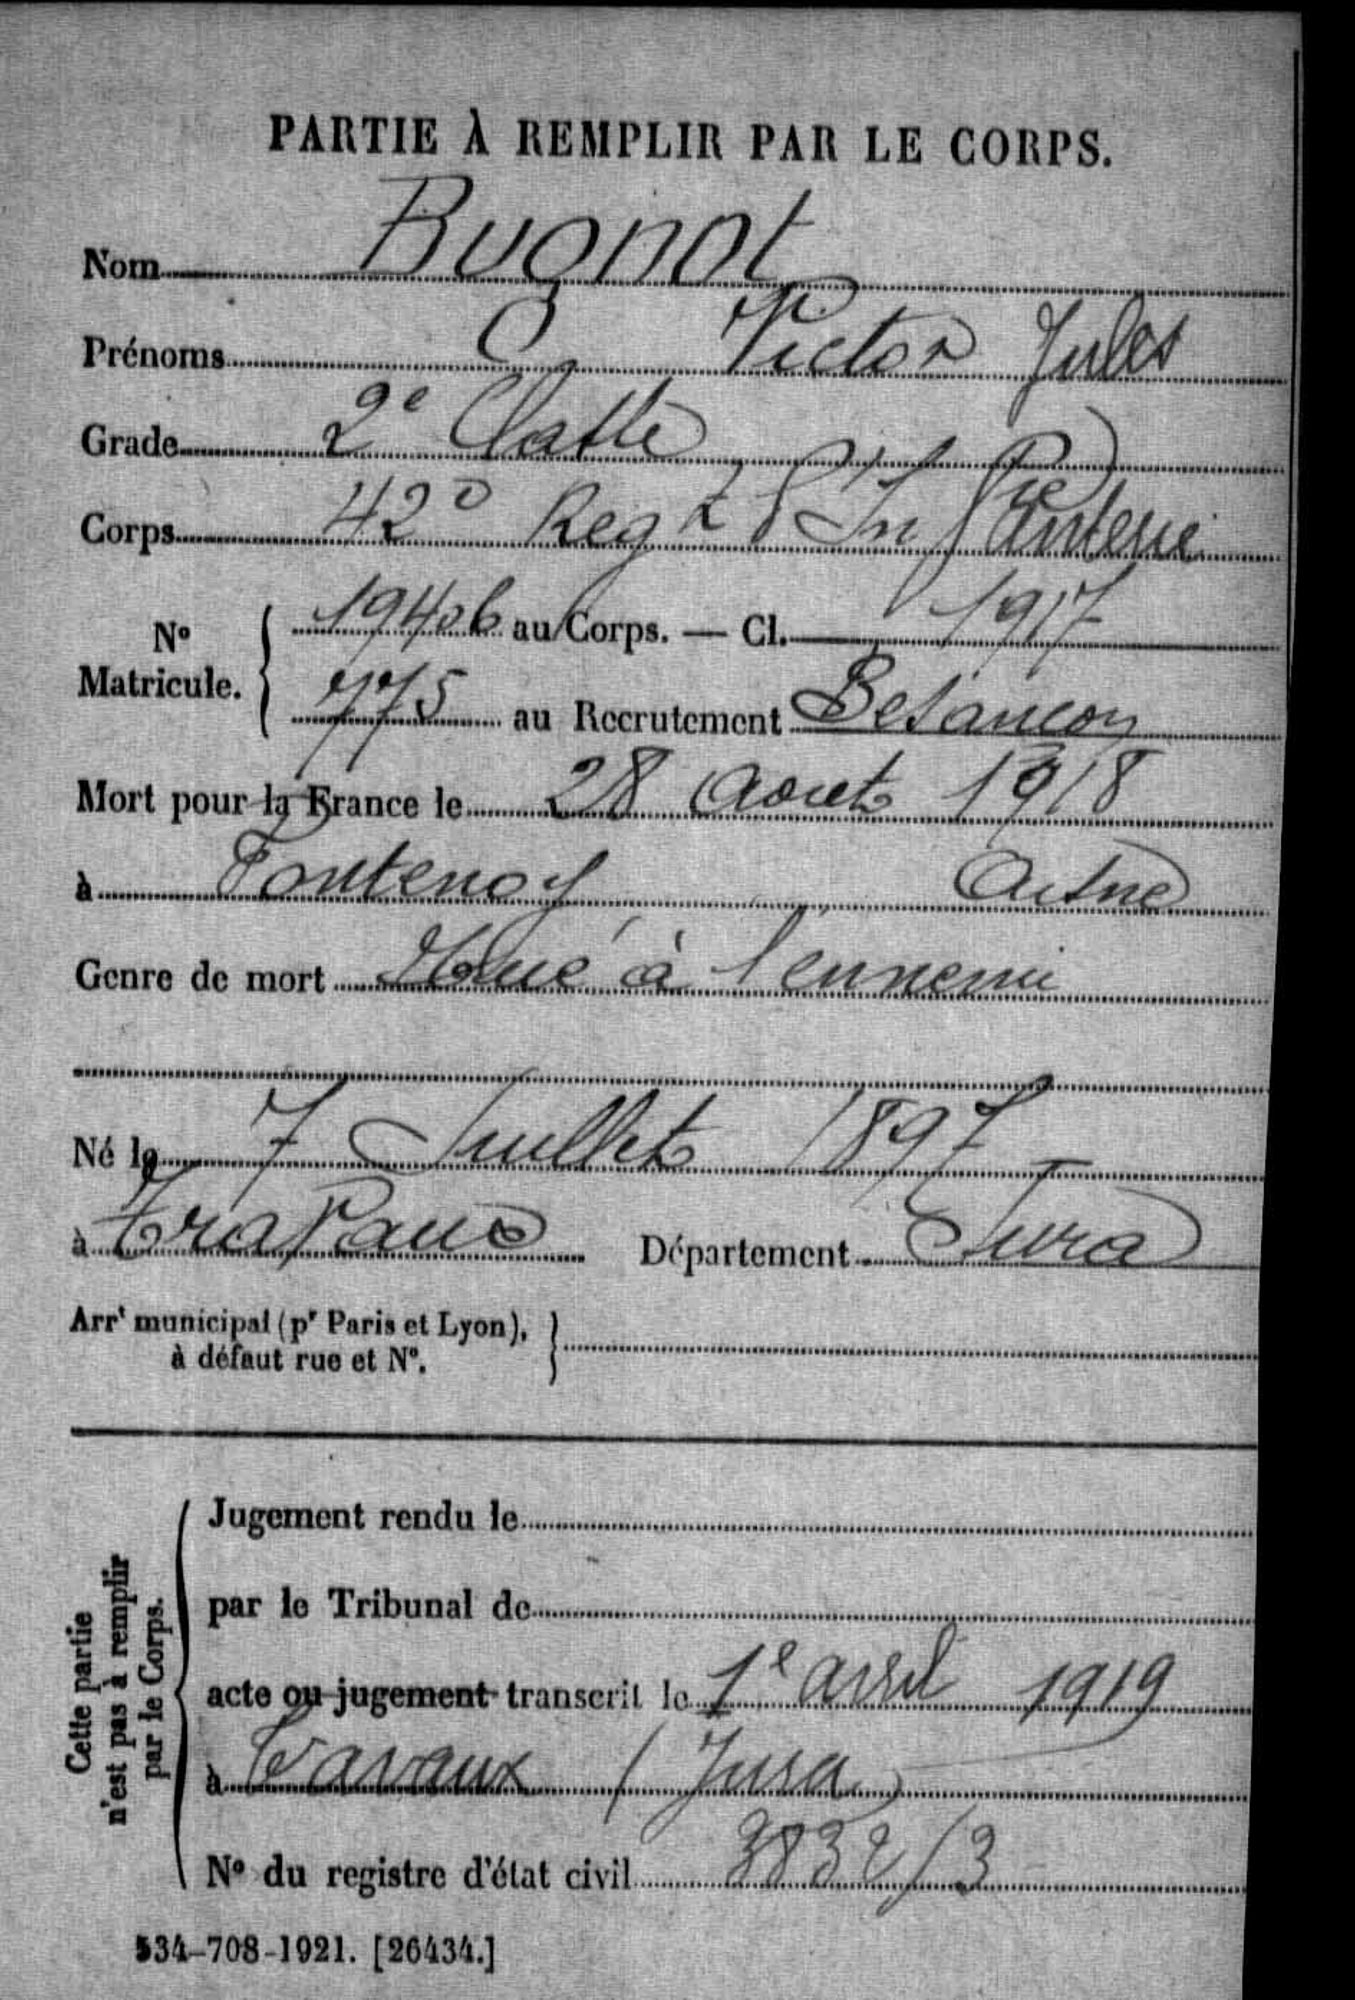 PARTIE À REMPLIR PAR LE CORPS.
Nom Bugnot
Prénoms Victor Jules
Grade 2e Classe
Corps 42e Regt d'Infanterie
No Matricule. 19406 au Corps. — Cl. 1917
775 au Recrutement Besançon
Mort pour la France le 28 Aout 1918
à Fontenoy Aisne
Genre de mort Tué à l'ennemi
Né le 7 Juillet 1897
à Département Jura
Arrt municipal (pr Paris et Lyon),
à défaut rue et No.
Cette partie
n'est pas à remplir
par le Corps.
Jugement rendu le
par le Tribunal de
acte ou jugement transcrit le 1e avril 1919
à Tavaux (Jura)
No du registre d'état civil 3832/3
534-708-1921. [26434.]